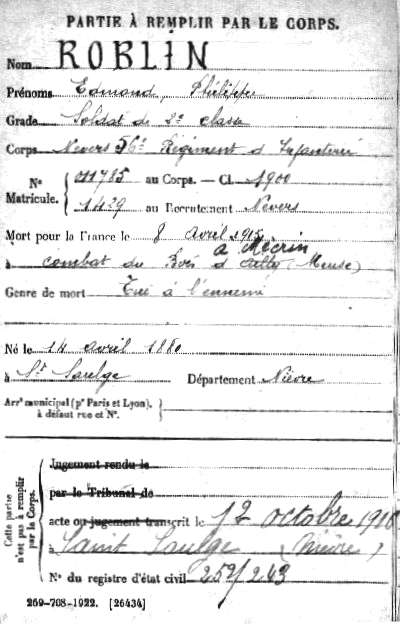 PARTIE À REMPLIR PAR LE CORPS.
Nom ROBLIN
Prénoms Edmond, Philippe
Grade Soldat de 2e classe
Corps Nevers 56e Régiment d'Infanterie
N° Matricule. { 011785 au Corps. — Cl. 1900
1439 au Recrutement Nevers
Mort pour la France le 8 avril 1915
à Mécrin
à combat du Bois d'Ailly (Meuse)
Genre de mort Tué à l'ennemi
Né le 14 avril 1880
à St Saulge Département Nièvre
Arrt municipal (pr Paris et Lyon), à défaut rue et N°.
Cette partie n'est pas à remplir par le Corps.
Jugement rendu le
par le Tribunal de
acte ou jugement transcrit le 12 octobre 1916
à Saint Saulge (Nièvre)
N° du registre d'état civil 259/243
269-708-1922. [26434]